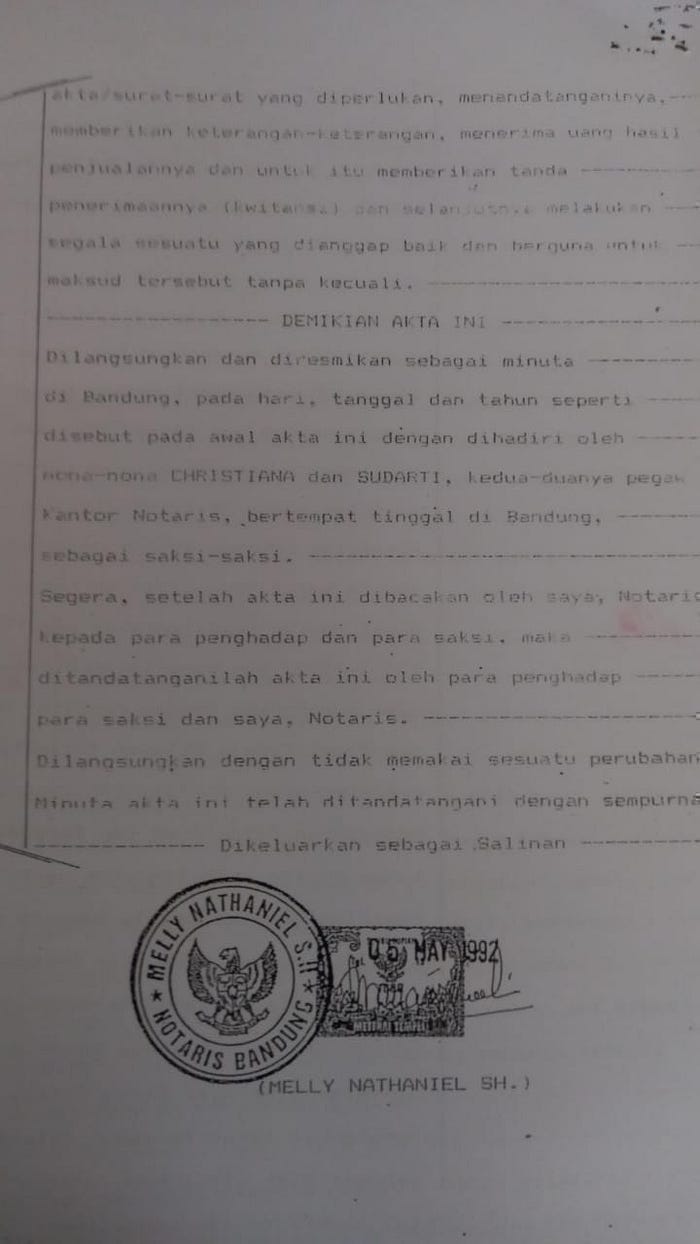 akta/surat-surat yang diperlukan, menandatanganinya,---
memberikan keterangan-keterangan, menerima uang hasil
penjualannya dan untuk itu memberikan tanda ----------
penerimaannya (kwitansi) dan selanjutnya melakukan ---
segala sesuatu yang dianggap baik dan berguna untuk --
maksud tersebut tanpa kecuali. -----------------------
------------------ DEMIKIAN AKTA INI -----------------
Dilangsungkan dan diresmikan sebagai minuta ----------
di Bandung, pada hari, tanggal dan tahun seperti -----
disebut pada awal akta ini dengan dihadiri oleh ------
nona-nona CHRISTIANA dan SUDARTI, kedua-duanya pegaw
Kantor Notaris, bertempat tinggal di Bandung, --------
sebagai saksi-saksi. ---------------------------------
Segera, setelah akta ini dibacakan oleh saya, Notaris
kepada para penghadap dan para saksi, maka -----------
ditandatanganilah akta ini oleh para penghadap -------
para saksi dan saya, Notaris. ------------------------
Dilangsungkan dengan tidak memakai sesuatu perubahan
Minuta akta ini telah ditandatangani dengan sempurna
-------------- Dikeluarkan sebagai Salinan -----------
MELLY NATHANIEL S.H
NOTARIS BANDUNG
05 MAY 1992
(MELLY NATHANIEL SH.)